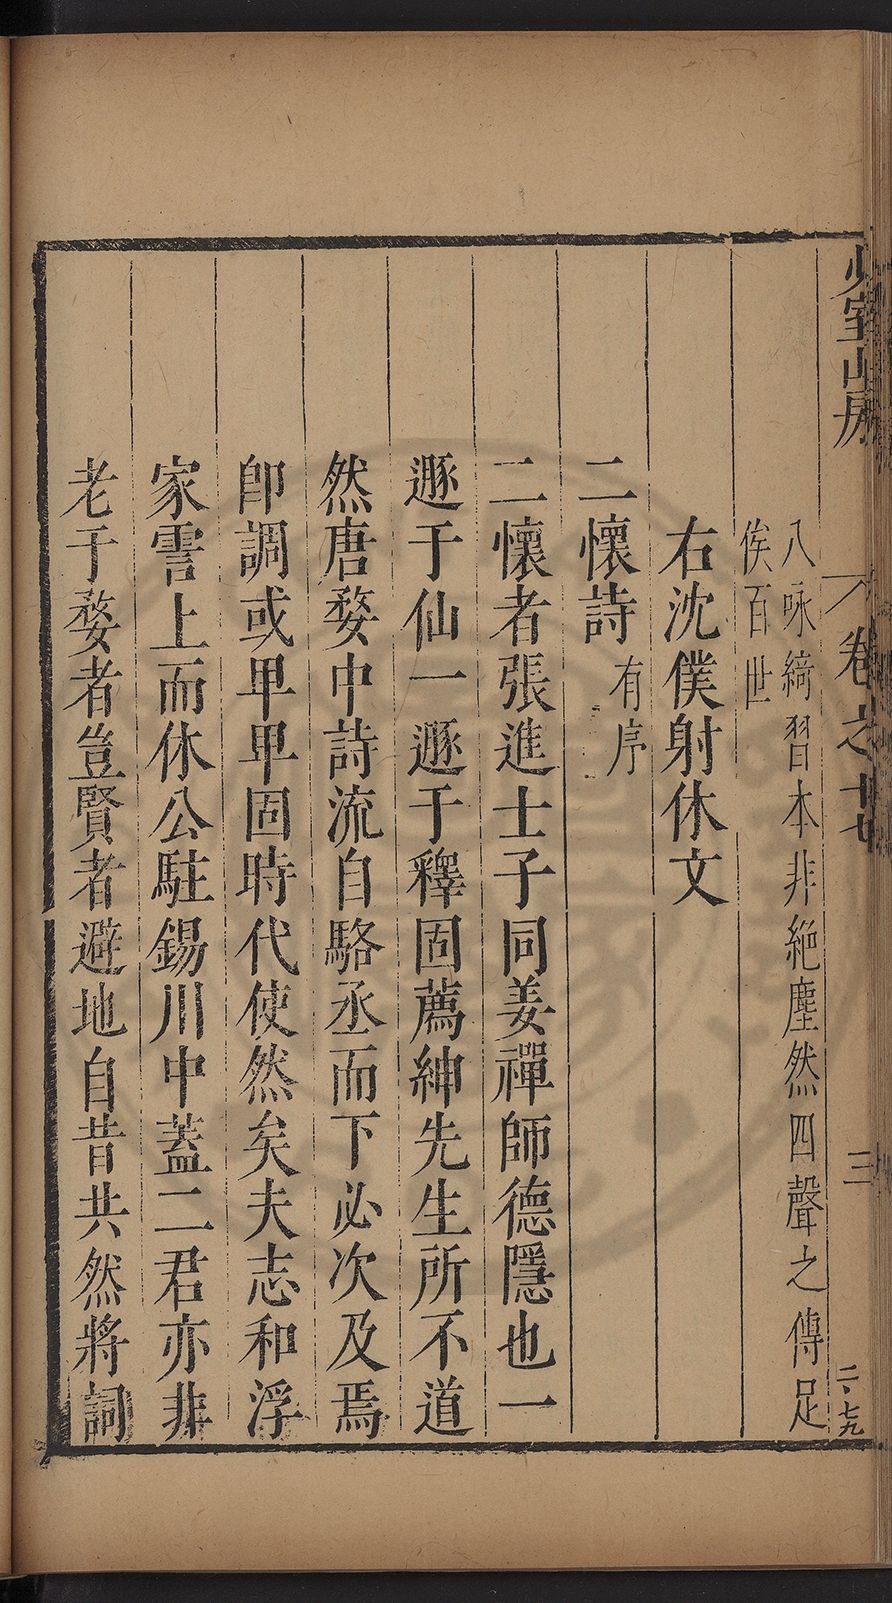 少室山房
卷之十七
三
二·七九
八咏綺習本非絶塵然四聲之傳足
俟百世
右沈僕射休文
二懷詩有序
二懷者張進士子同姜禪師德隱也一
遯于仙一遯于釋固薦紳先生所不道
然唐婺中詩流自駱丞而下必次及焉
卽調或甲甲固時代使然矣夫志和浮
家霅上而休公駐錫川中蓋二君亦非
老于婺者豈賢者避地自昔共然將詞